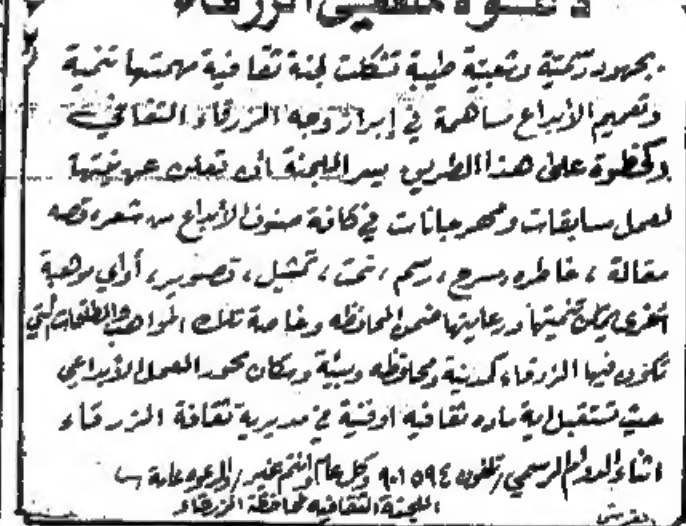 دعوة لمثقفي الزرقاء
بجهود رسمية وشعبية طيبة تشكلت لجنة ثقافية مهمتها تنمية
وتعميم الأبداع مساهمة في إبراز وجه الزرقاء الثقافي
وكخطوة على هذا الطريق يسر اللجنة بأن تعلن عن نيتها
لعمل مسابقات ومهرجانات في كافة صنوف الأبداع من شعر، قصه
مقالة ، خاطره ، مسرح ، رسم ، نحت ، تمثيل ، تصوير ، أو اي موهبة
أخرى يمكن تنميتها ورعايتها ضمن المحافظه وخاصة تلك المواهب والطلعات التي
تكون فيها الزرقاء كمدينة ومحافظه وبيئة وسكان محور العمل الأبداعي
حيث تستقبل اية ماده ثقافيه او فنية في مديرية ثقافة الزرقاء
اثناء الدوام الرسمي / تلفون ٩٠١٥٩٤ وكل عام وانتم بخير / والدعوه عامة
اللجنة الثقافيه لمحافظة الزرقاء